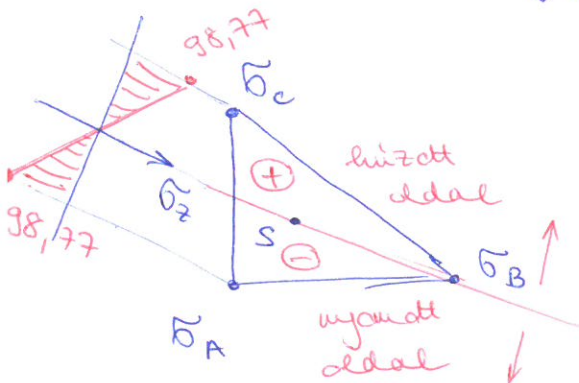 98,77
σc
húzott
oldal
+
σz
98,77
S
−
σB
σA
nyomott
oldal